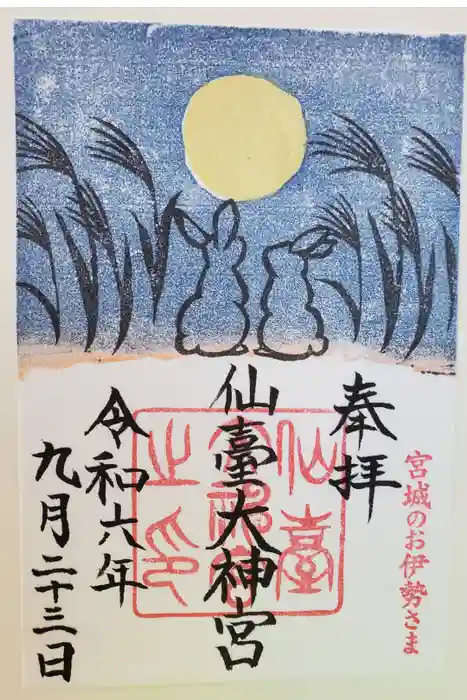 宮城のお伊勢さま
奉拝
仙臺大神宮
仙臺大神宮之印
令和六年
九月二十三日